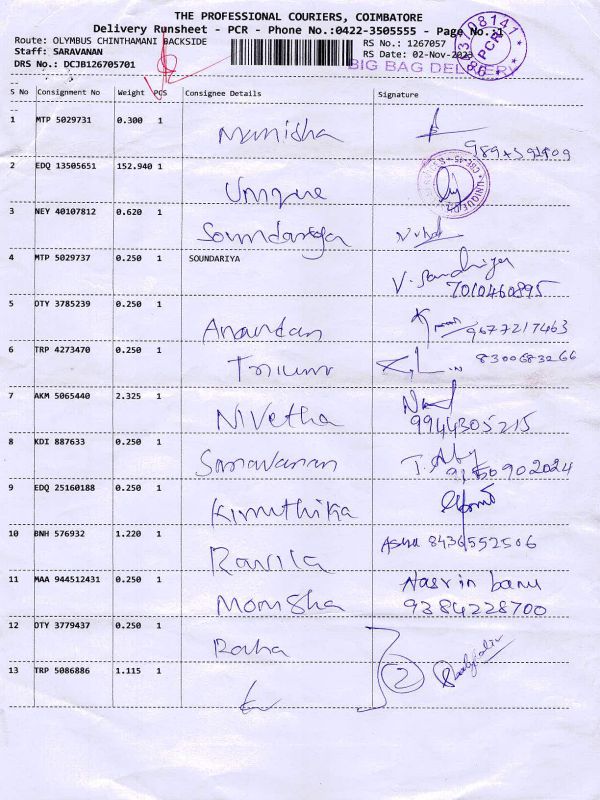 THE PROFESSIONAL COURIERS, COIMBATORE
Delivery Runsheet - PCR - Phone No.:0422-3505555 - Page No.:1
Route: OLYMBUS CHINTHAMANI BACKSIDE
RS No.: 1267057
Staff: SARAVANAN
RS Date: 02-Nov-2023
DRS No.: DCJB126705701
BIG BAG DELIVERY
PCR
S No Consignment No Weight PCS Consignee Details Signature
1 MTP 5029731 0.300 1 Manisha
2 EDQ 13505651 152.940 1 Unique
3 NEY 40107812 0.620 1 Soundariya
4 MTP 5029737 0.250 1 SOUNDARIYA V. Sandhiya
7010460895
5 DTY 3785239 0.250 1 Anandan 9677217463
6 TRP 4273470 0.250 1 8300683266
7 AKM 5065440 2.325 1 Nivetha
9944305215
8 KDI 887633 0.250 1 Saravanan
9 EDQ 25160188 0.250 1 Kiruthika
10 BNH 576932 1.220 1 8436552506
11 MAA 944512431 0.250 1 Monisha Nasrin banu
9384228700
12 DTY 3779437 0.250 1
13 TRP 5086886 1.115 1
2